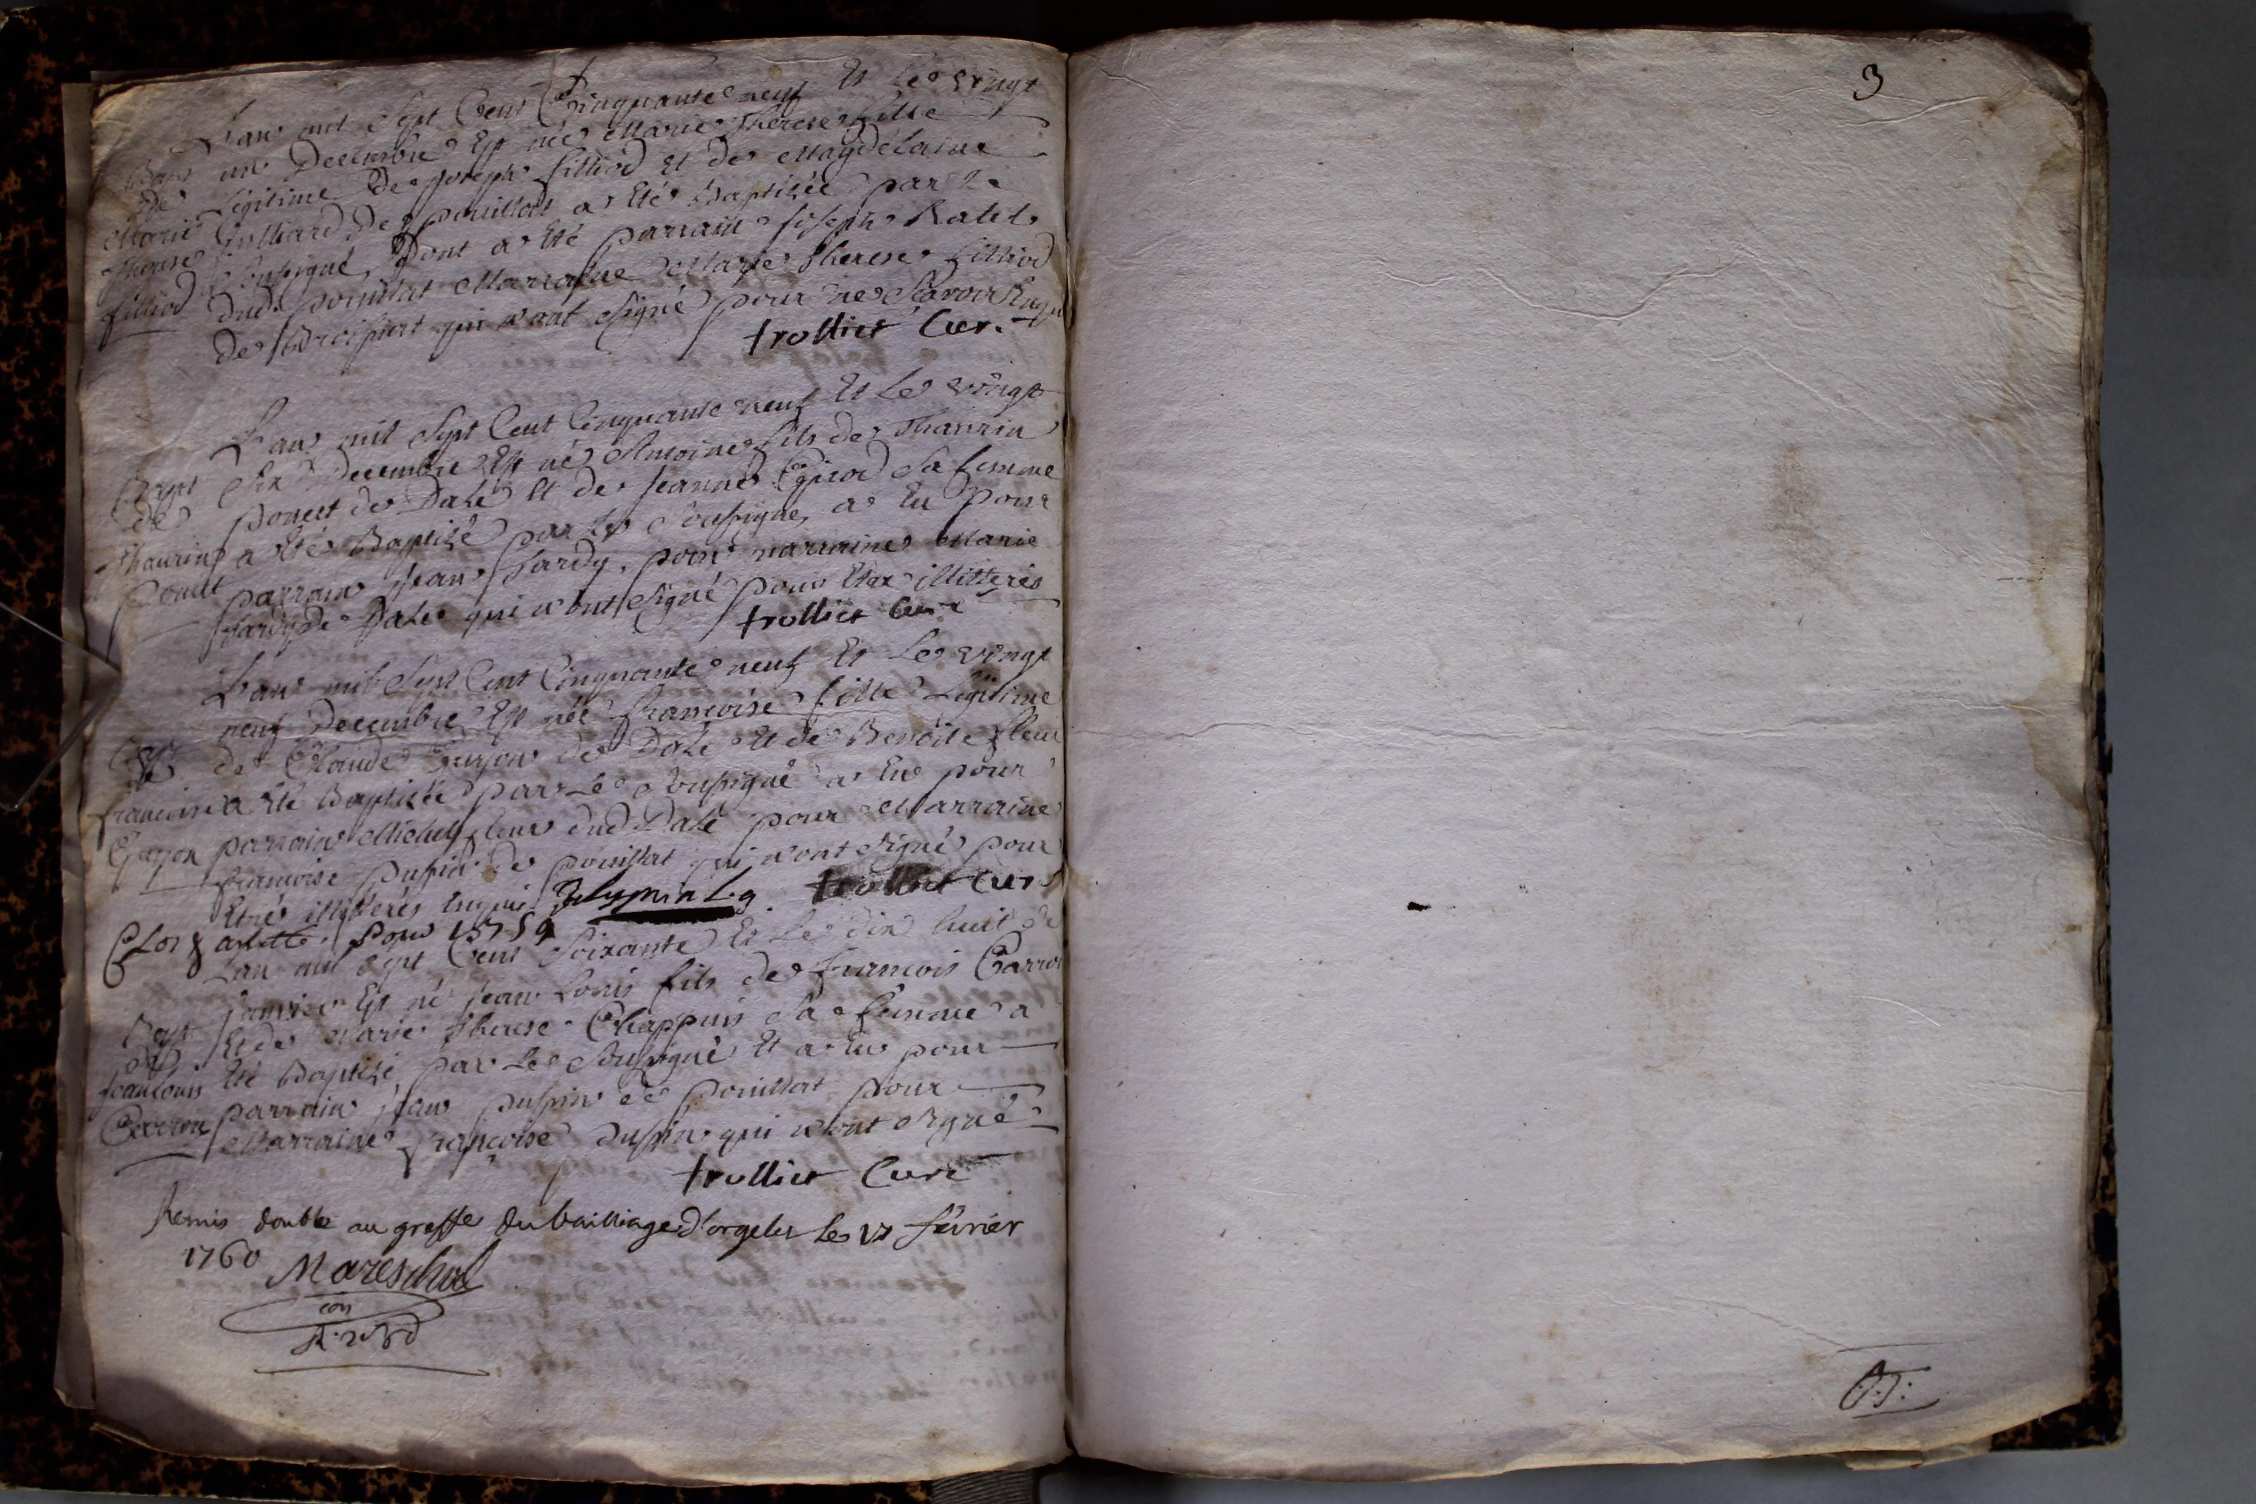 L'an mil sept Cent Cinquante neuf Et le vingt
Bapt un Decembre Est née Marie Therese fille
de Légitime De Joseph filliod Et de Magdelaine
Marie Julliard De pouillat a été Baptisée par le
Therese soussigné, Dont a été parrain Joseph Ratel
filliod dud. pouillat Marraine Marie Therese filliod
de qui n'ont signé pour ne sçavoir
trollier Curé
L'an mil sept Cent Cinquante neuf Et le vingt
Bapt six Decembre Est né Antoine fils de Thaurin
de poncet de Dalé Et de Jeanne sa femme
Thaurin a été Baptisé par le soussigné, a Eu pour
poncet parrain Jean hardy, pour marraine Marie
hardy De Dalé qui n'ont signé pour Etre illitterés
trollier Curé
L'an mil sept Cent Cinquante neuf Et le vingt
neuf Decembre Est née françoise fille Légitime
Bapt de Claude Guyon de Dalé Et de Benoite fleur
francoise a été Baptisée par le soussigné a Eu pour
Guyon parrain Michel fleur dud Dalé pour Marraine
francoise pupin de pouillat qui n'ont signé pour
Etre illitterés Enquis trollier Curé
Clos & arretté pour 1759
L'an mil sept Cent soixante Et le dix huit de
janvier Est né Jean Louis fils de francois Carron
Bapt Et de Marie Therese Chappuis sa femme a
de
Jeanlouis été Baptisé par le soussigné Et a Eu pour
Carron parrain jean pupin de pouillat pour
Marraine françoise dupin qui n'ont signé
trollier Curé
Remis double au greffe du bailliage d'orgelet le 17 février
1760 Mareschal
con
3